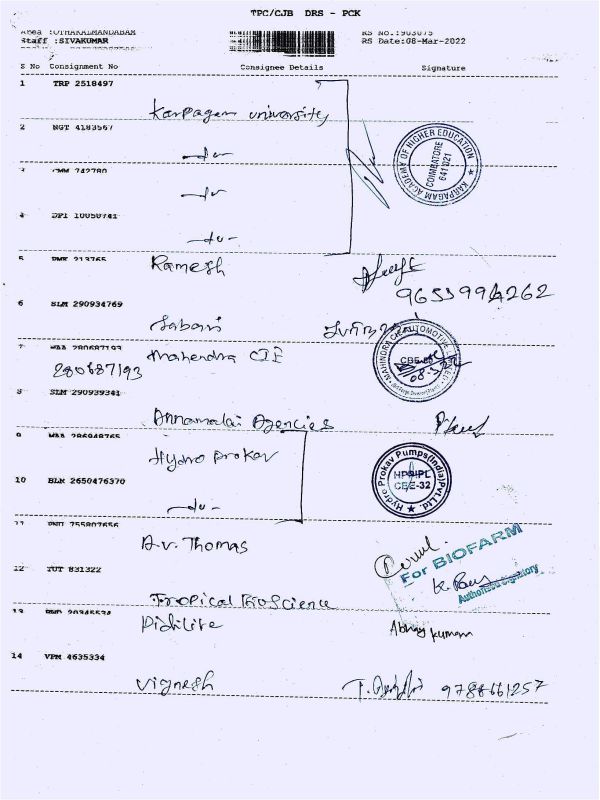 TPC/CJB DRS - PCK
Area :OTHAKALMANDABAM
Staff :SIVAKUMAR
RS No.:903075
RS Date:08-Mar-2022
S No Consignment No Consignee Details Signature
1 TRP 2518497
Karpagam university
2 NGT 4183567
-do-
3 CMM 742780
-do-
4 DPI 10050741
-do-
5 213765
Ramesh
9655994262
6 SLM 290934769
Sabari
7 WAA 280687193
280687193
Mahendra CIE
8 SLM 290939341
Annamalai Agencies
9 WAA 286948765
Hydro Prokav
10 BLR 2650476370
-do-
11 PNU 755807656
A.V. Thomas
12 TUT 831322
Tropical BioScience
13 20345534
Pidilite
Abhay Kumar
14 VPM 4635334
Vignesh
9788661257
KARPAGAM ACADEMY OF HIGHER EDUCATION
COIMBATORE
641 021
MAHINDRA CIE AUTOMOTIVE
Hydro Prokav Pumps(India)Pvt.Ltd.
HPPIPL
CEE-32
For BIOFARM
Authorised Signatory